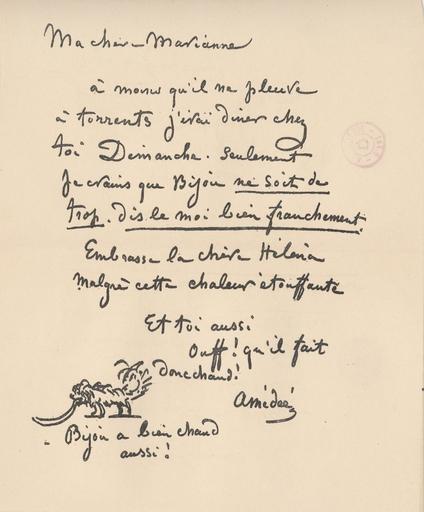 Ma chère Marianne
à moins qu'il ne pleuve
à torrents j'irai diner chez
toi Dimanche. Seulement
Je crains que Bijou ne soit de
trop. dis le moi bien franchement.
Embrasse la chère Héléna
malgré cette chaleur étouffante
Et toi aussi
Ouff! qu'il fait
donc chaud!
Amédée
Bijou a bien chaud
aussi!